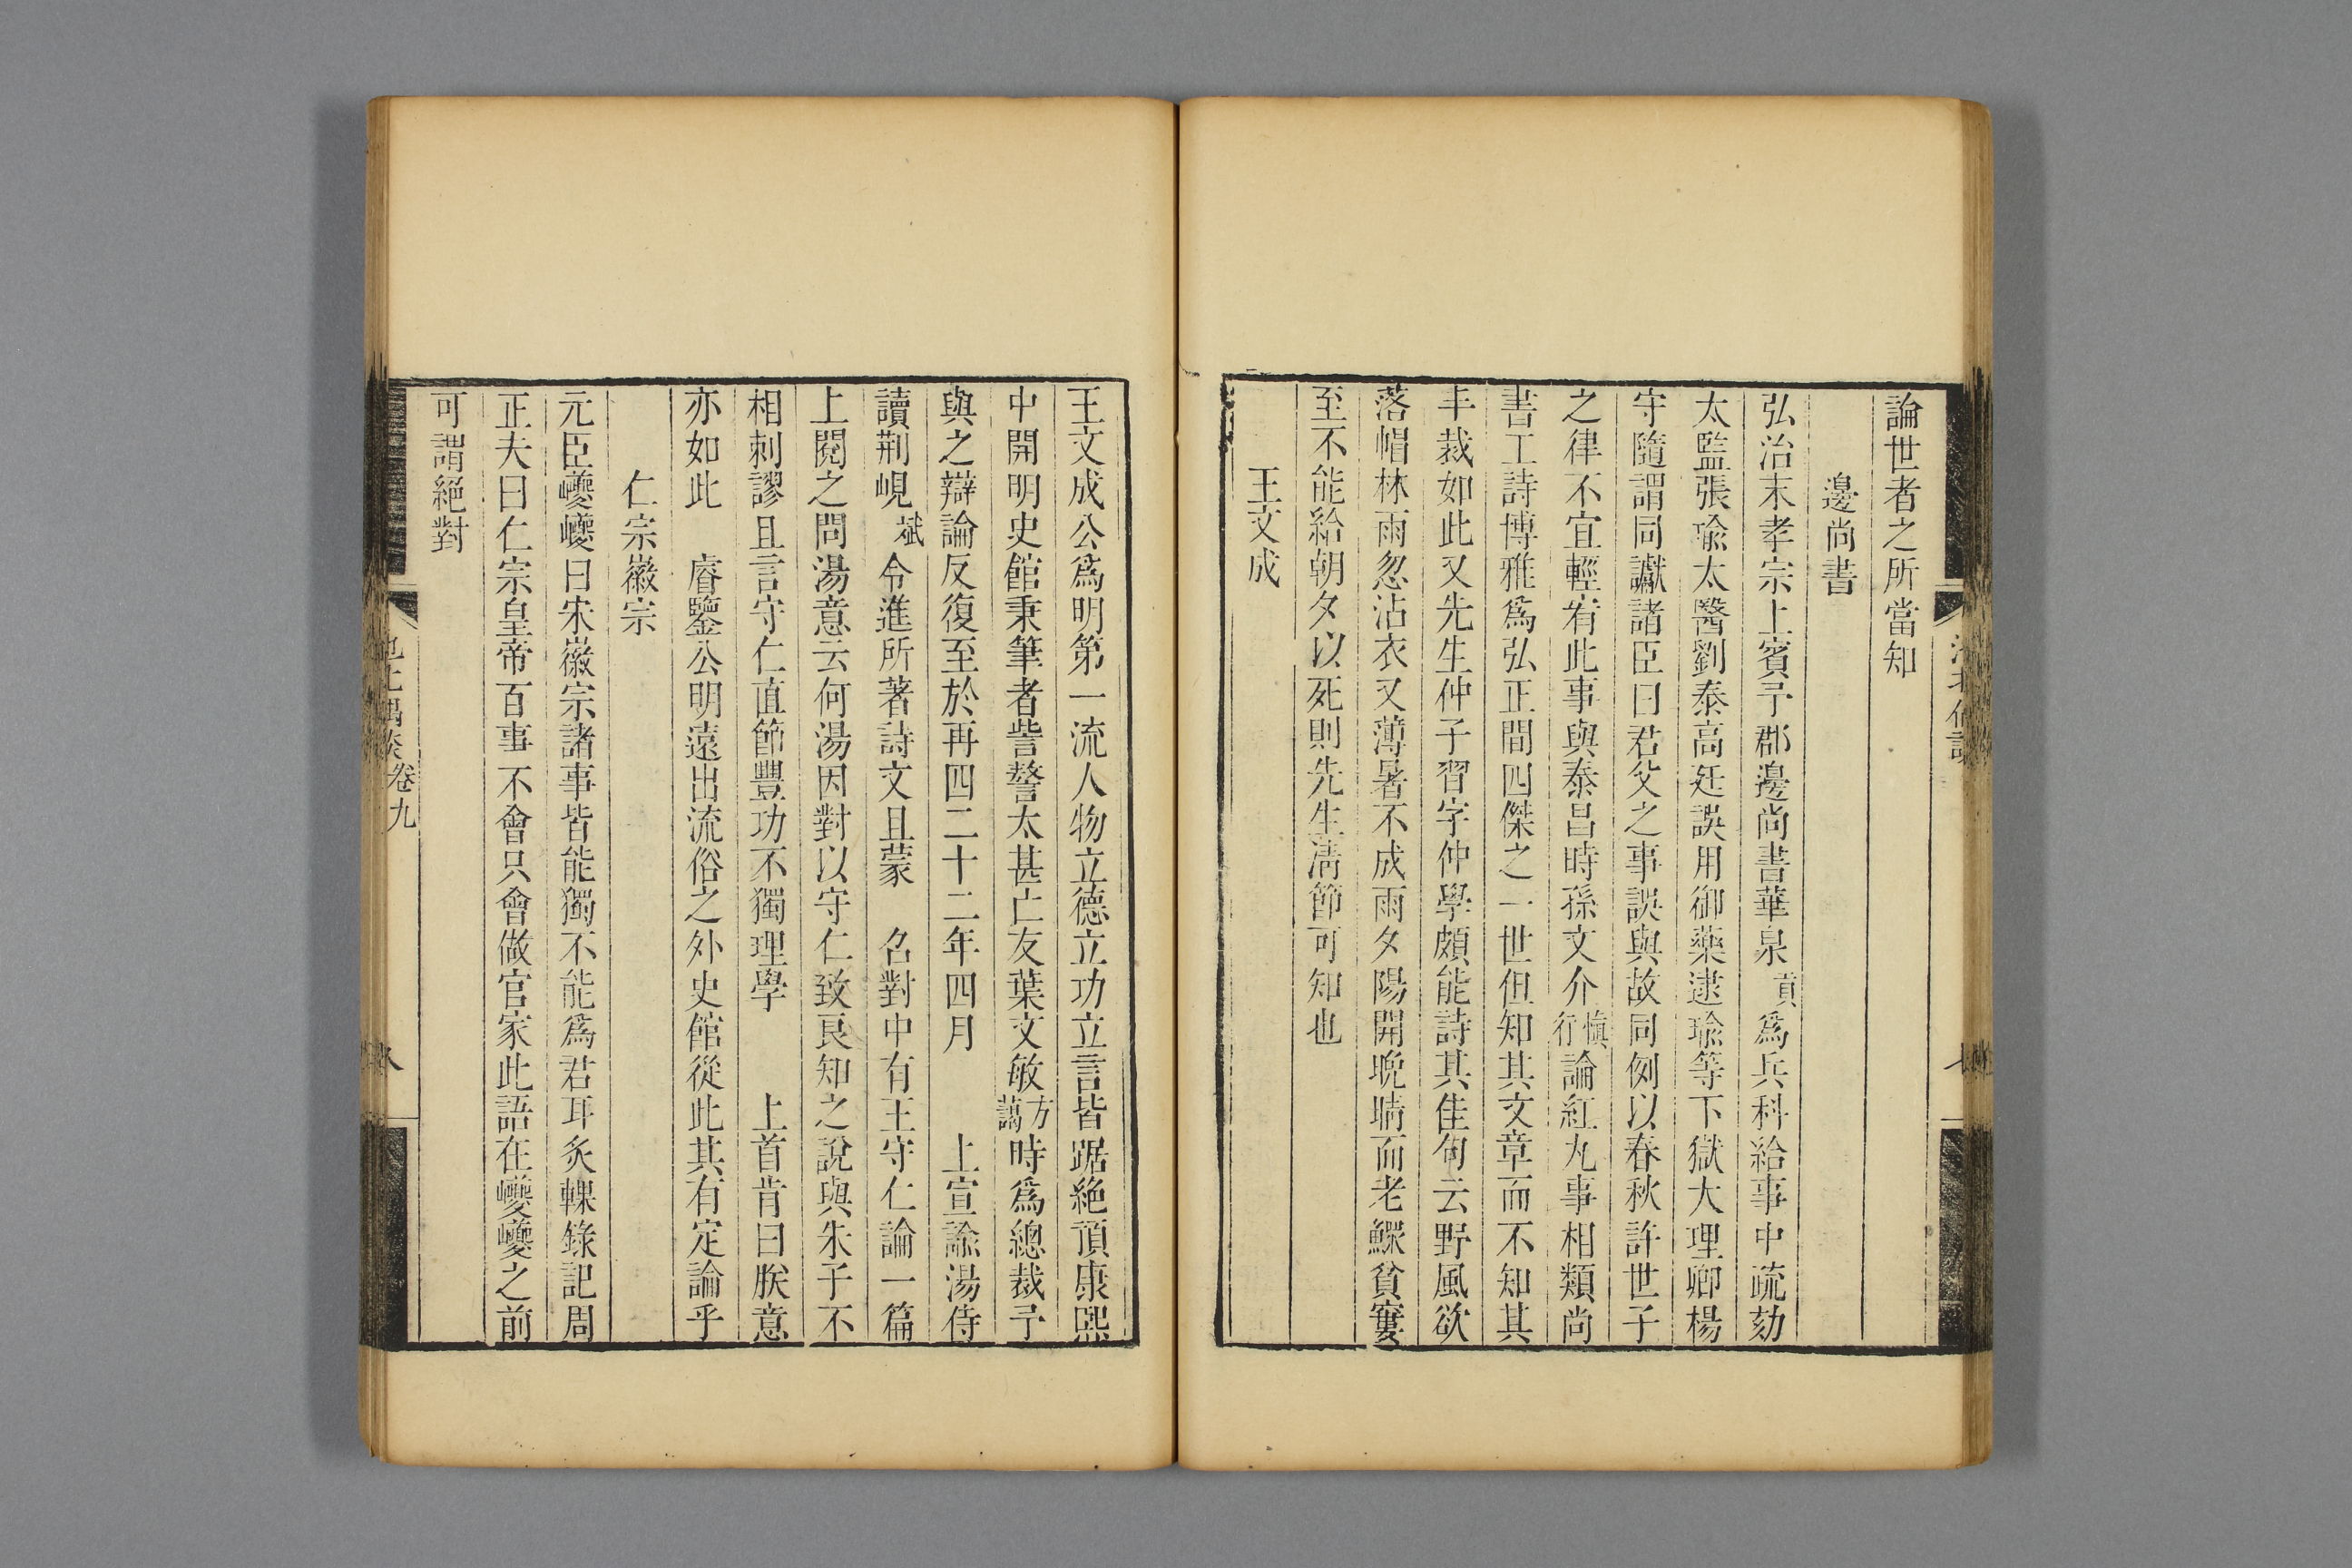 論世者之所當知
邊尚書
弘治末孝宗上賓予郡邊尚書華泉貢爲兵科給事中疏劾
太監張瑜太醫劉泰高廷誤用御藥逮瑜等下獄大理卿楊
守隨謂同讞諸臣曰君父之事誤與故同例以春秋許世子
之律不宜輕宥此事與泰昌時孫文介慎行論紅丸事相類尚
書工詩博雅爲弘正間四傑之一世但知其文章而不知其
丰裁如此又先生仲子習字仲學頗能詩其佳句云野風欲
落帽林雨忽沾衣又薄暑不成雨夕陽開晚晴而老鰥貧窶
至不能給朝夕以死則先生淸節可知也
王文成
王文成公爲明第一流人物立德立功立言皆踞絕頂康熙
中開明史館秉筆者訾謷太甚亡友葉文敏方藹時爲總裁予
與之辯論反復至於再四二十二年四月 上宣諭湯侍
讀荆峴斌令進所著詩文且蒙 名對中有王守仁論一篇
上閱之問湯意云何湯因對以守仁致良知之說與朱子不
相刺謬且言守仁直節豐功不獨理學 上首肯曰朕意
亦如此 睿鑒公明遠出流俗之外史館從此其有定論乎
仁宗徽宗
元臣巙巙曰宋徽宗諸事皆能獨不能爲君耳炙輠錄記周
正夫曰仁宗皇帝百事不會只會做官家此語在巙巙之前
可謂絕對
卷九
八